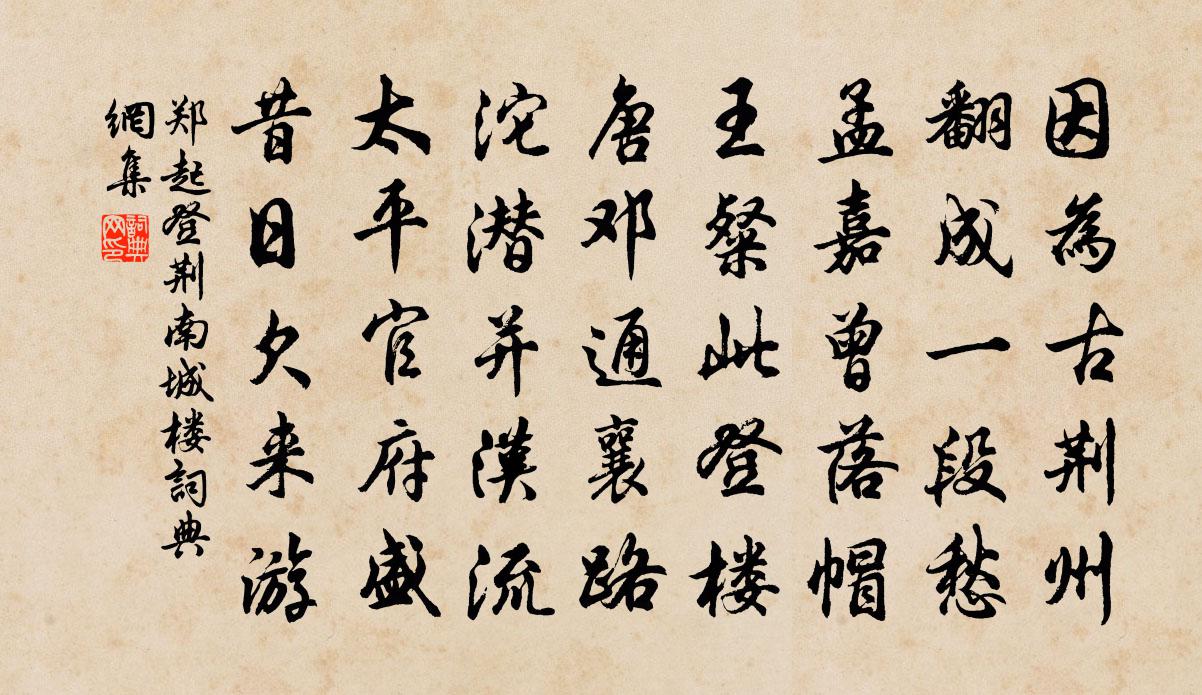 因為古荆州
翻成一段愁
孟嘉曾落帽
王粲此登楼
唐邓通襄路
沱潜并漢流
太平官府盛
昔日欠来游
郑起登荆南城楼詞典
網集
詞典